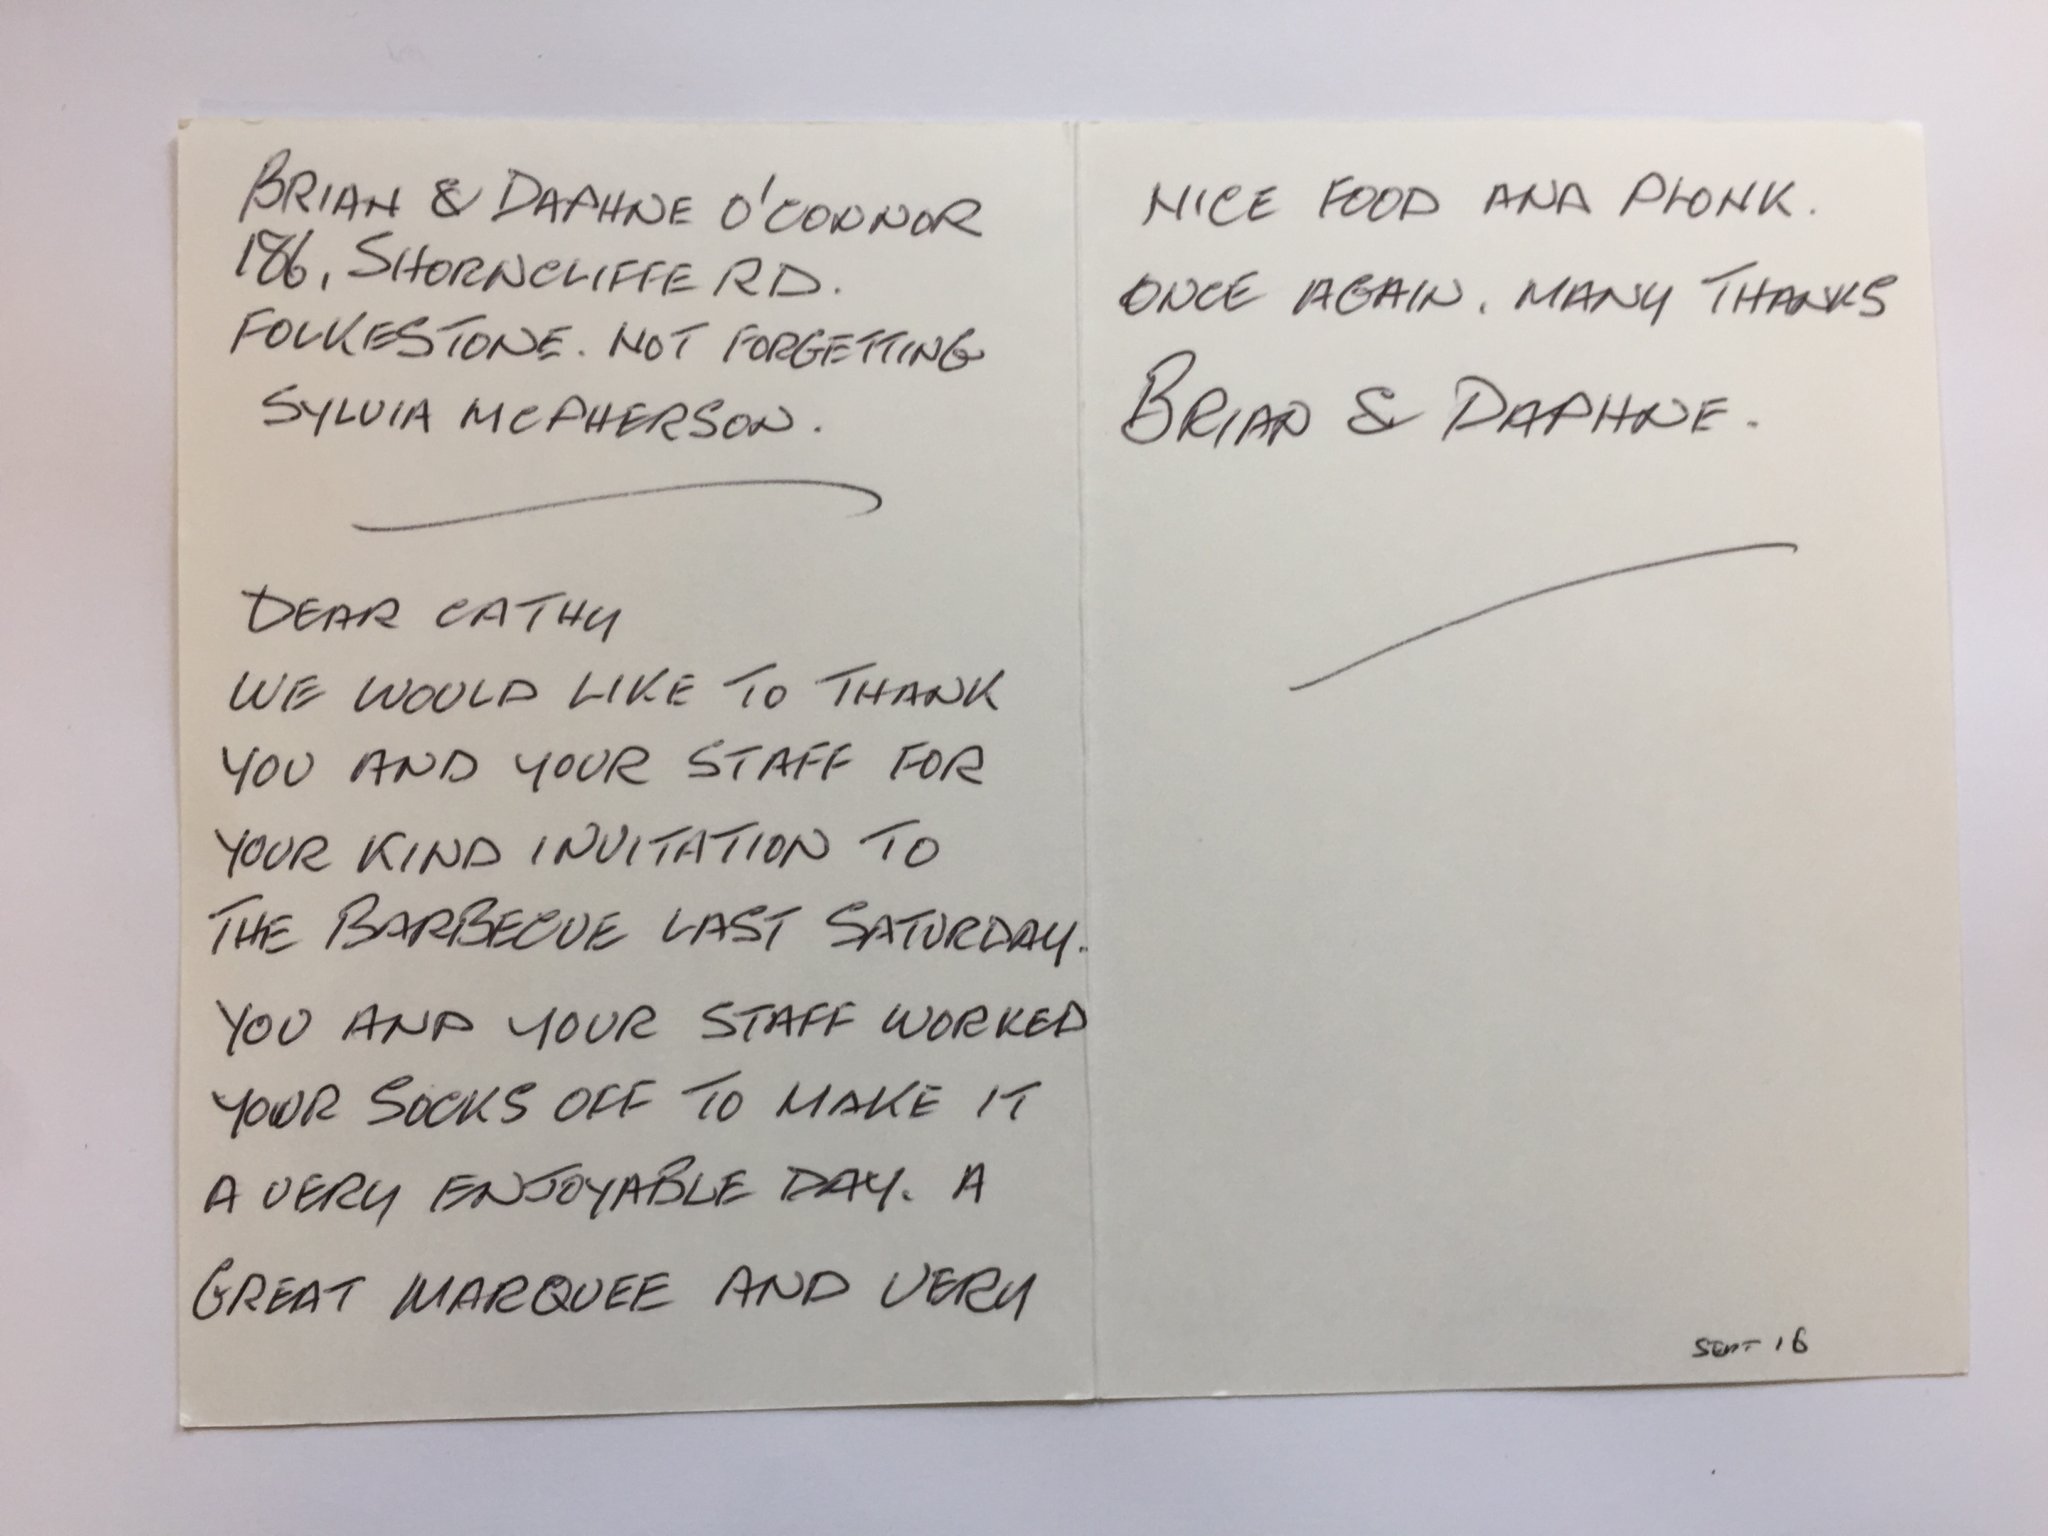 BRIAN & DAPHNE O'CONNOR
186, SHORNCLIFFE RD.
FOLKESTONE. NOT FORGETTING
SYLVIA MCPHERSON.
DEAR CATHY
WE WOULD LIKE TO THANK
YOU AND YOUR STAFF FOR
YOUR KIND INVITATION TO
THE BARBECUE LAST SATURDAY.
YOU AND YOUR STAFF WORKED
YOUR SOCKS OFF TO MAKE IT
A VERY ENJOYABLE DAY. A
GREAT MARQUEE AND VERY
NICE FOOD AND PLONK.
ONCE AGAIN. MANY THANKS
BRIAN & DAPHNE.
SEPT 16